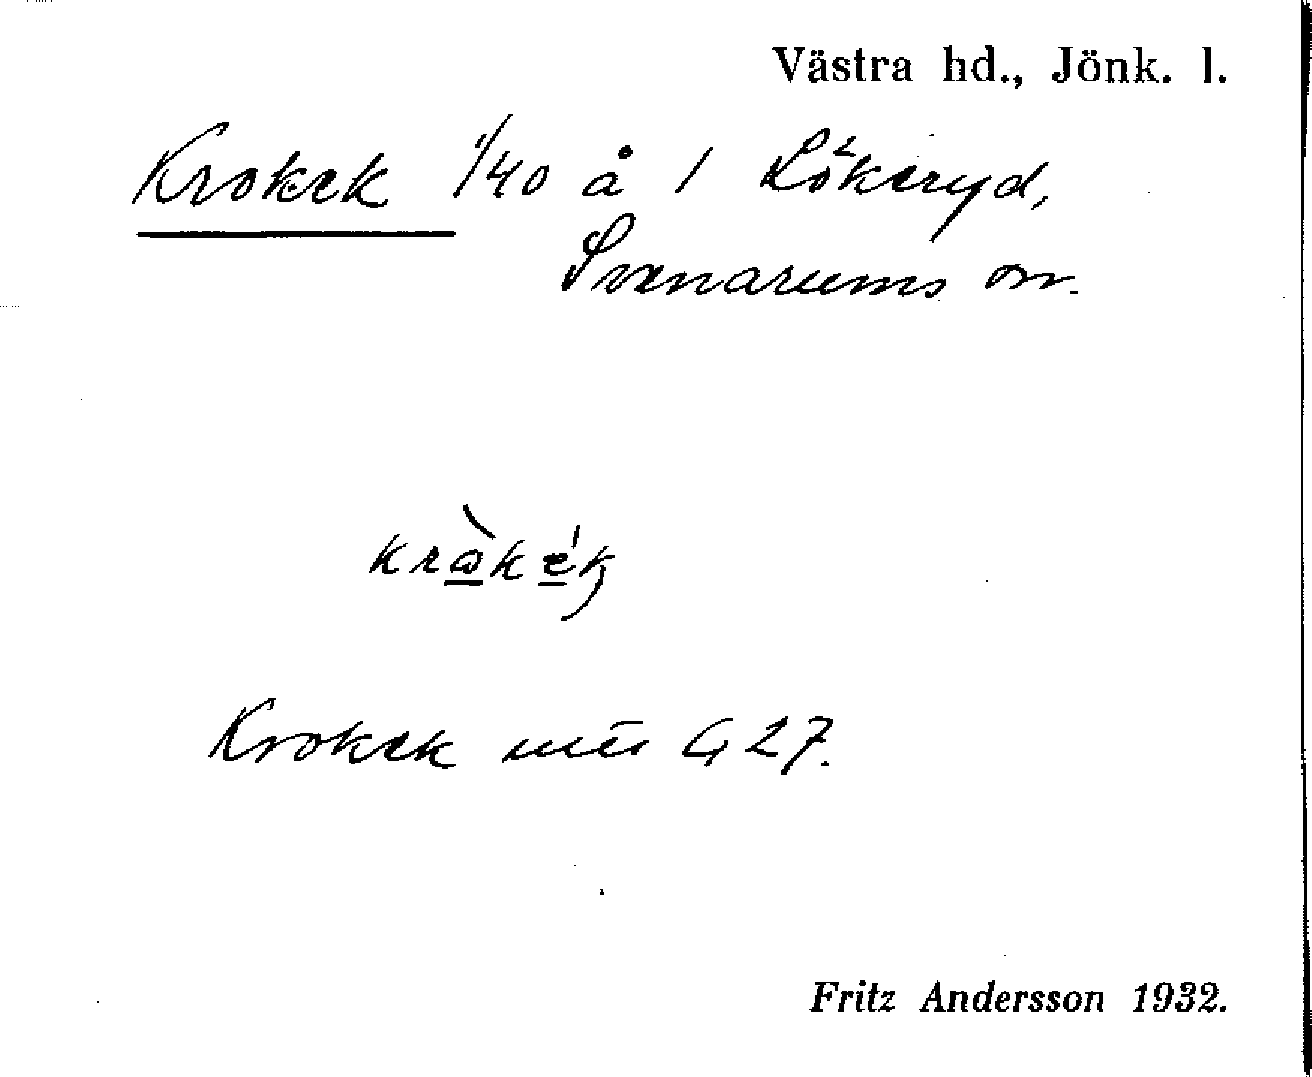 Västra hd., Jönk. l.
Krokek 1/40 å 1 Lökeryd,
Svenarums sn.
Krokek G 27.
Fritz Andersson 1932.